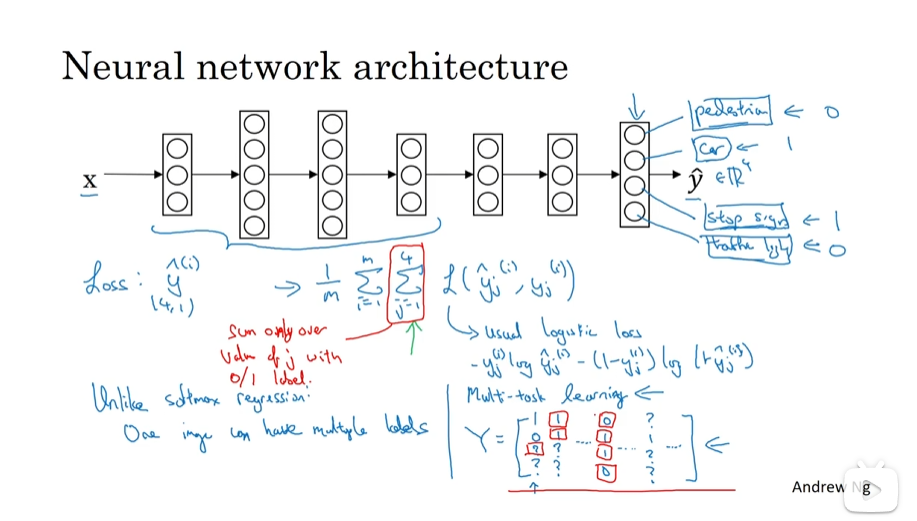 Neural network architecture
pedestrian ← 0
car ← 1
x
ŷ ∈ ℝ⁴
stop sign ← 1
← 0
Loss: ŷ^(i) → 1/m Σ_{i=1}^{m} Σ_{j=1}^{4} L(ŷ_j^(i), y_j^(i))
(4,1)
Sum only over
value of j with
0/1 label.
→ usual logistic loss
- y_j^(i) log ŷ_j^(i) - (1-y_j^(i)) log (1-ŷ_j^(i))
Unlike softmax regression:
One image can have multiple labels
Multi-task learning ←
Y = [ 1 1 0 ?
0 1 .... 1 .... 1 .... ] ←
? ? 1 ?
? ? 0 ?
Andrew Ng